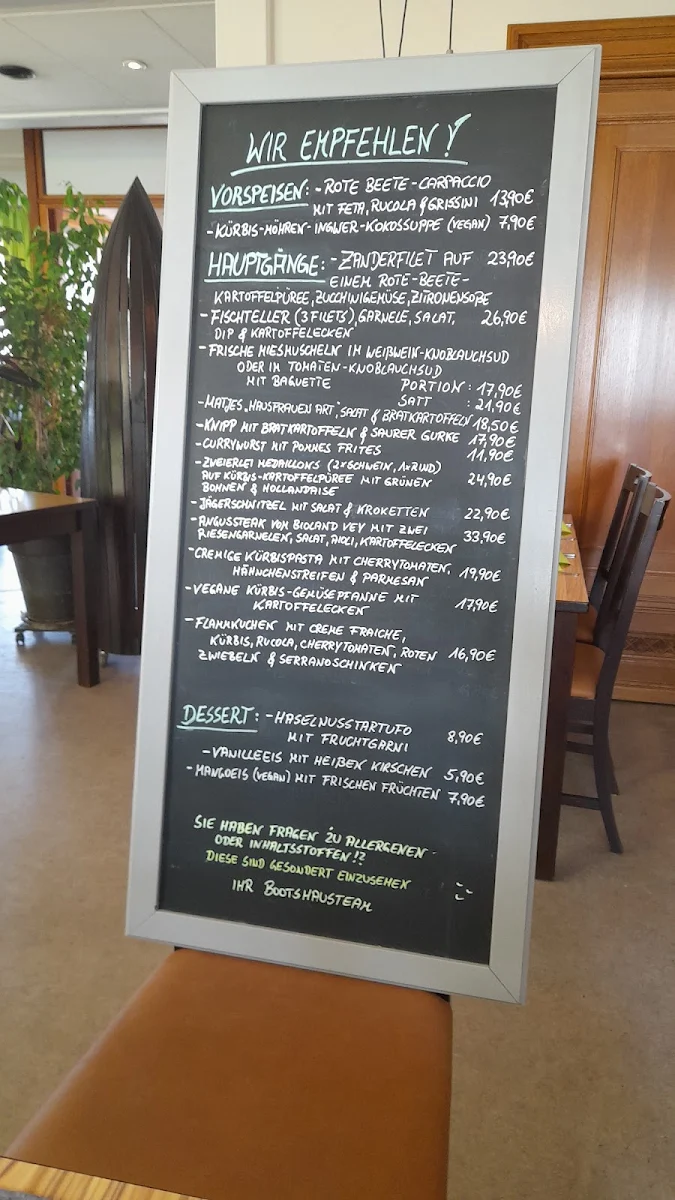 WIR EMPFEHLEN!
VORSPEISEN: - ROTE BEETE-CARPACCIO
MIT FETA, RUCOLA & GRISSINI 13,90€
- KÜRBIS-MÖHREN-INGWER-KOKOSSUPPE (VEGAN) 7,90€
HAUPTGÄNGE: - ZANDERFILET AUF 23,90€
EINEM ROTE-BEETE-
KARTOFFELPÜREE, ZUCCHINIGEMÜSE, ZITRONENSOßE
- FISCHTELLER (3 FILETS), GARNELE, SALAT, 26,90€
DIP & KARTOFFELECKEN
- FRISCHE MIESMUSCHELN IM WEIßWEIN-KNOBLAUCHSUD
ODER IM TOMATEN-KNOBLAUCHSUD
MIT BAGUETTE PORTION: 17,90€
SATT : 21,90€
- MATJES „HAUSFRAUEN ART", SALAT & BRATKARTOFFELN 18,50€
- KNIPP MIT BRATKARTOFFELN & SAURER GURKE 17,90€
- CURRYWURST MIT POMMES FRITES 11,90€
- ZWEIERLEI MEDAILLONS (2x SCHWEIN, 1x RIND)
AUF KÜRBIS-KARTOFFELPÜREE MIT GRÜNEN 24,90€
BOHNEN & HOLLANDAISE
- JÄGERSCHNITZEL MIT SALAT & KROKETTEN 22,90€
- ANGUSSTEAK VOM BIOLAND VEY MIT ZWEI
RIESENGARNELEN, SALAT, AIOLI, KARTOFFELECKEN 33,90€
- CREMIGE KÜRBISPASTA MIT CHERRYTOMATEN,
HÄHNCHENSTREIFEN & PARMESAN 19,90€
- VEGANE KÜRBIS-GEMÜSEPFANNE MIT
KARTOFFELECKEN 17,90€
- FLAMMKUCHEN MIT CREME FRAICHE,
KÜRBIS, RUCOLA, CHERRYTOMATEN, ROTEN 16,90€
ZWIEBELN & SERRANOSCHINKEN
DESSERT: - HASELNUSSTARTUFO
MIT FRUCHTGARNI 8,90€
- VANILLEEIS MIT HEIßEN KIRSCHEN 5,90€
- MANGOEIS (VEGAN) MIT FRISCHEN FRÜCHTEN 7,90€
SIE HABEN FRAGEN ZU ALLERGENEN
ODER INHALTSSTOFFEN!?
DIESE SIND GESONDERT EINZUSEHEN
IHR BOOTSHAUSTEAM